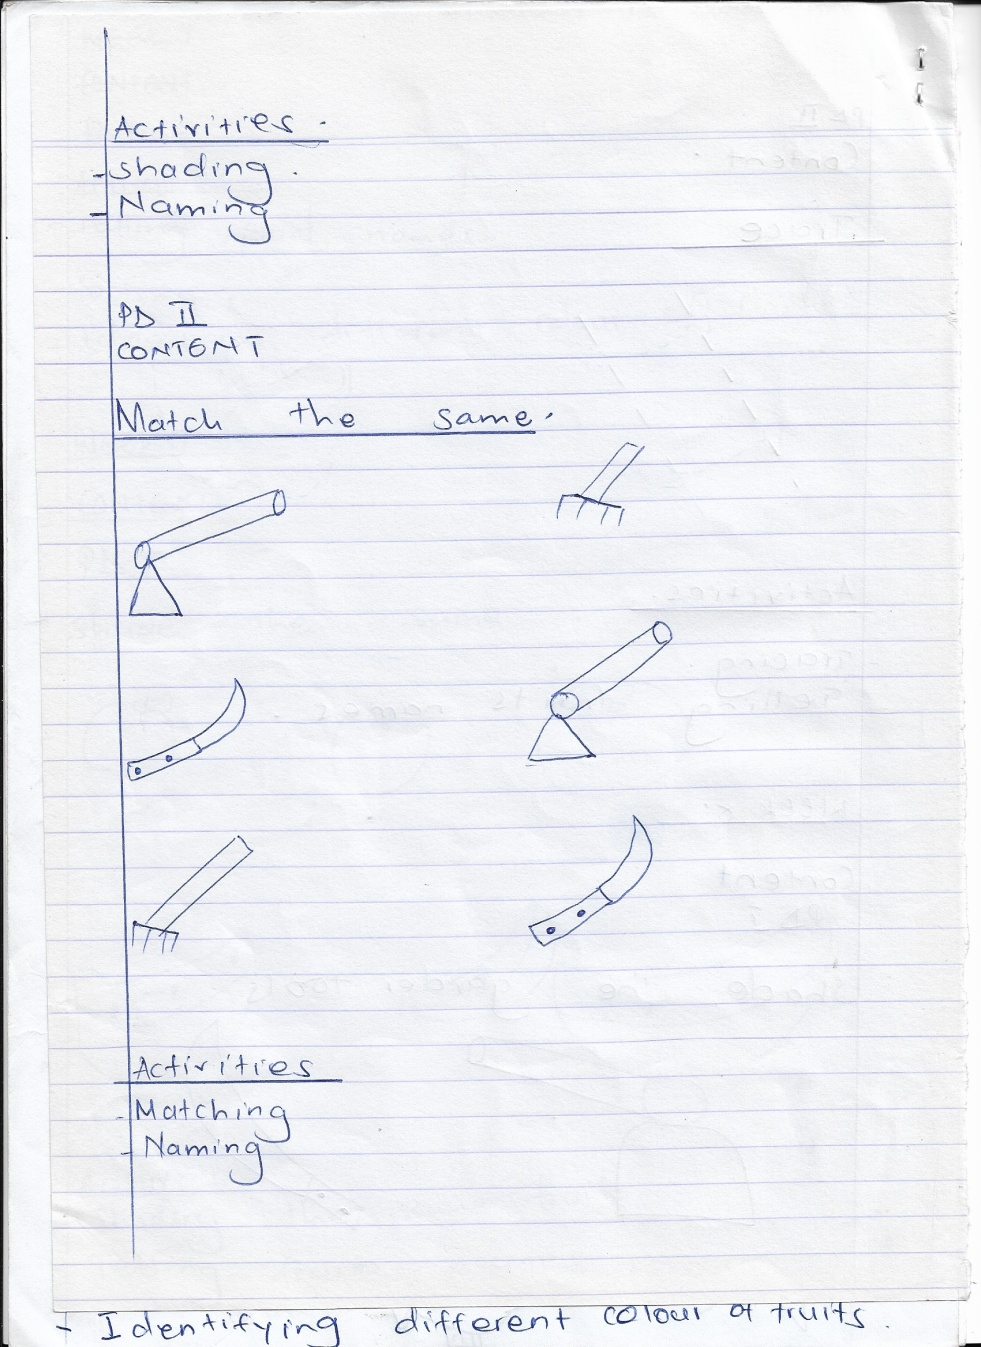 Activities.
- shading.
- Naming
PD II
CONTENT
Match the same.
Activities
- Matching
- Naming
- Identifying different colour of fruits.